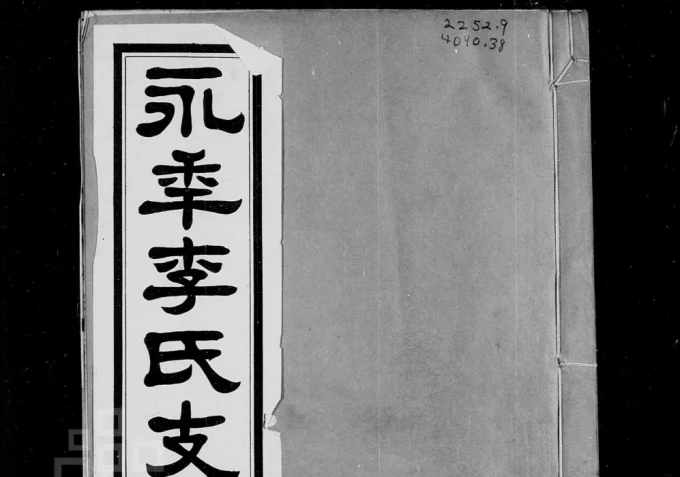 永年李氏支
2252.9
4040.38